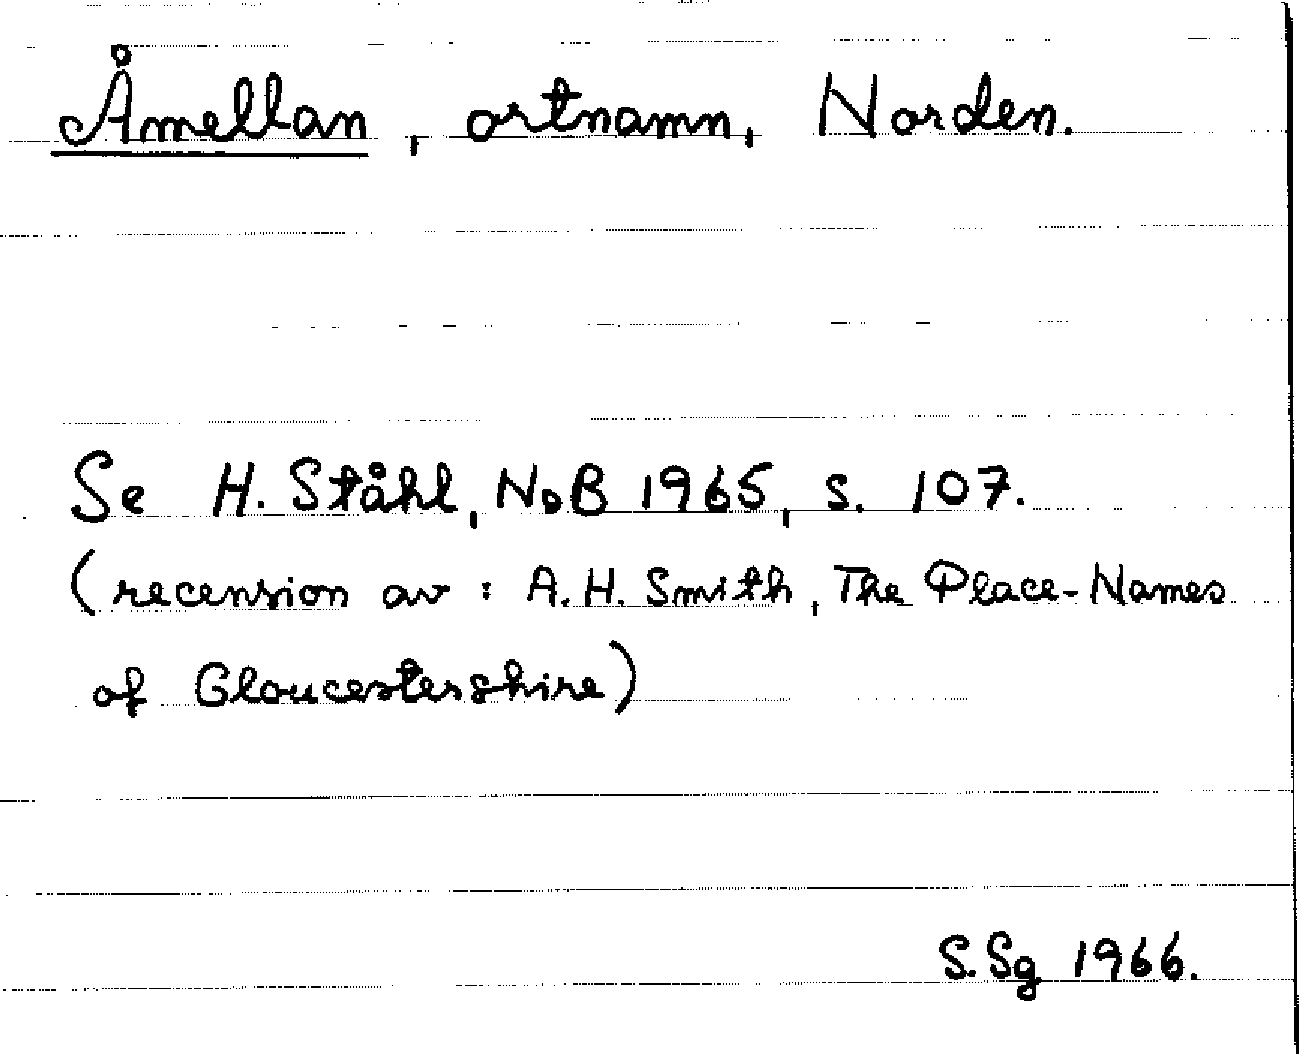 Åmellan, ortnamn, Norden.
Se H. Ståhl, NoB 1965, s. 107.
(recension av: A. H. Smith, The Place-Names
of Gloucestershire)
S. Sg 1966.